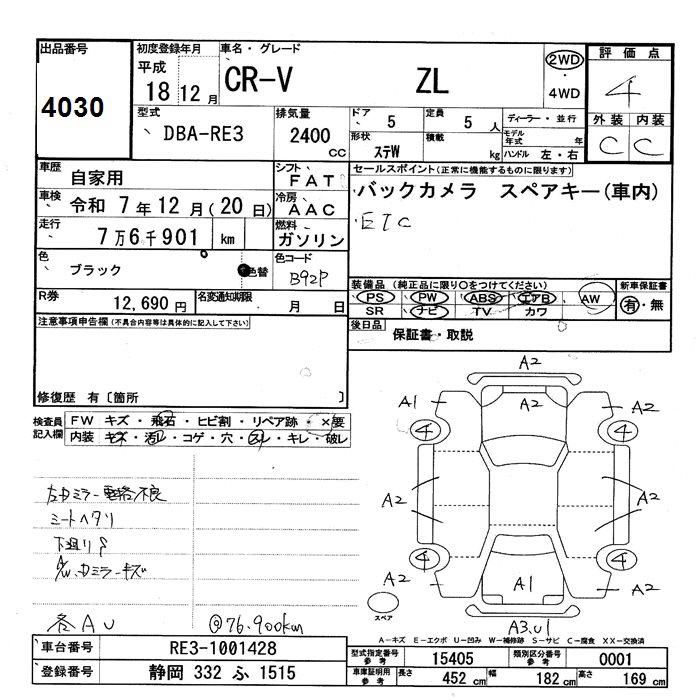 出品番号
4030
初度登録年月
平成
18 12 月
車名・グレード
CR-V ZL
2WD
・
4WD
評価点
4
外装 内装
C C
型式
DBA-RE3
排気量
2400 CC
ドア
5
定員
5 人
形状
ステW
積載
kg
ディーラー・並行
モデル年式 年
ハンドル 左・右
車歴
自家用
シフト
FAT
車検
令和 7年 12月(20日)
冷房
AAC
走行
7万6千901 km
燃料
ガソリン
色
ブラック
色替
色コード
B92P
R券
12,690 円
名変通知期限
月 日
セールスポイント(正常に機能するものに限ります)
バックカメラ スペアキー(車内)
ETC
装備品(純正品に限り○をつけてください)
PS PW ABS エアB AW
SR ナビ TV カワ
新車保証書
有・無
後日品
保証書・取説
注意事項申告欄(不具合内容等は具体的に記入して下さい)
修復歴 有〔箇所 〕
検査員
記入欄
FW キズ・飛石・ヒビ割・リペア跡・×要
内装 キズ・汚レ・コゲ・穴・スレ・キレ・破レ
左ドミラー電格不良
シートヘタリ
下廻りS
A/W、ドミラーキズ
各AU
@76,900km
A2
A1
A2
A2
4
4
A2
A2
4
4
A2
A1
A2
スペア
A3,U1
A-キズ E-エクボ U-凹み W-補修跡 S-サビ C-腐食 XX-交換済
車台番号
RE3-1001428
登録番号
静岡 332 ふ 1515
型式指定番号
参考
15405
類別区分番号
参考
0001
車庫証明用
参考
長さ 452 cm 幅 182 cm 高さ 169 cm